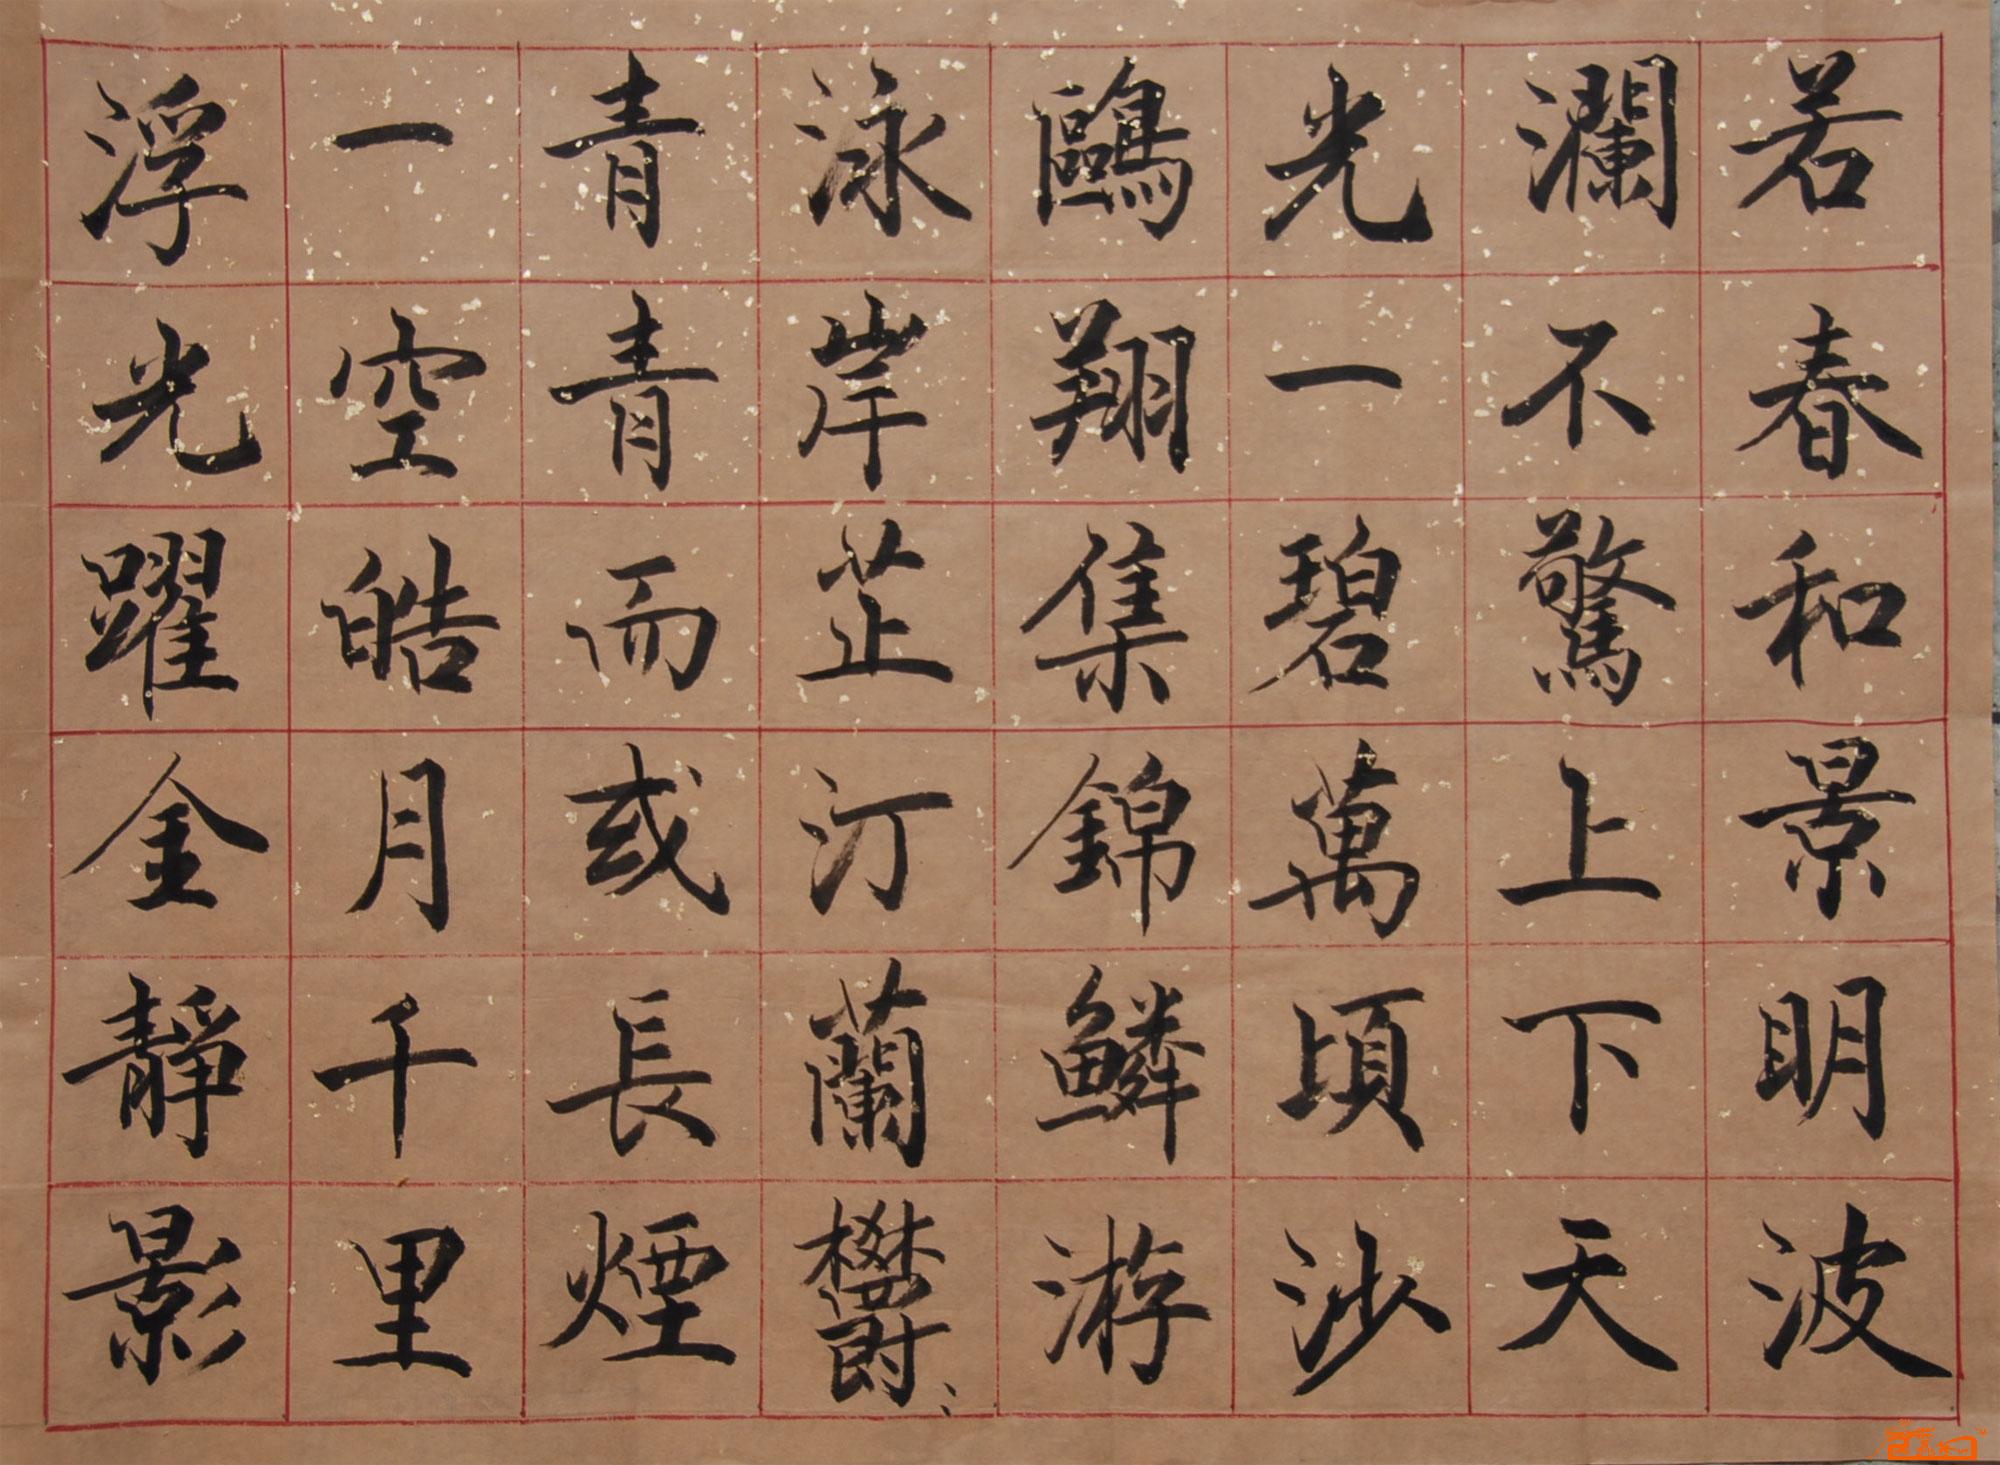 若春和景明波
瀾不驚上下天
光一碧萬頃沙
鷗翔集錦鱗游
泳岸芷汀蘭欝〻
青青而或長煙
一空皓月千里
浮光躍金靜影